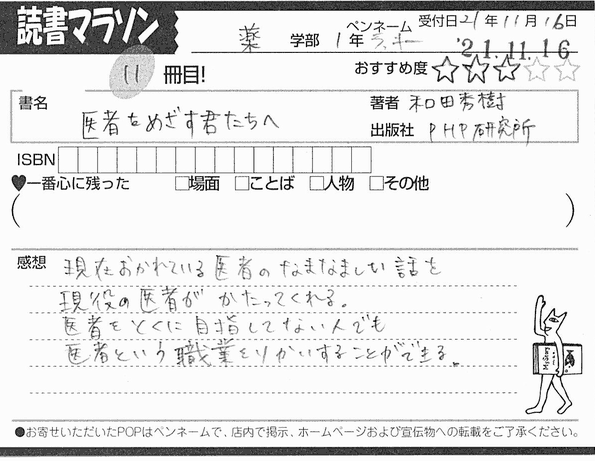 読書マラソン
薬 学部 1年 ペンネーム ラッキー 受付日21年11月16日
'21.11.16
11 冊目! おすすめ度 ☆☆☆☆☆
書名 医者をめざす君たちへ
著者 和田秀樹
出版社 PHP研究所
ISBN
♥一番心に残った □場面 □ことば □人物 □その他
( )
感想 現在おかれている医者のなまなましい話を
現役の医者が かたってくれる。
医者をとくに目指してない人でも
医者という職業をりかいすることができる。
●お寄せいただいたPOPはペンネームで、店内で掲示、ホームページおよび宣伝物への転載をご了承ください。